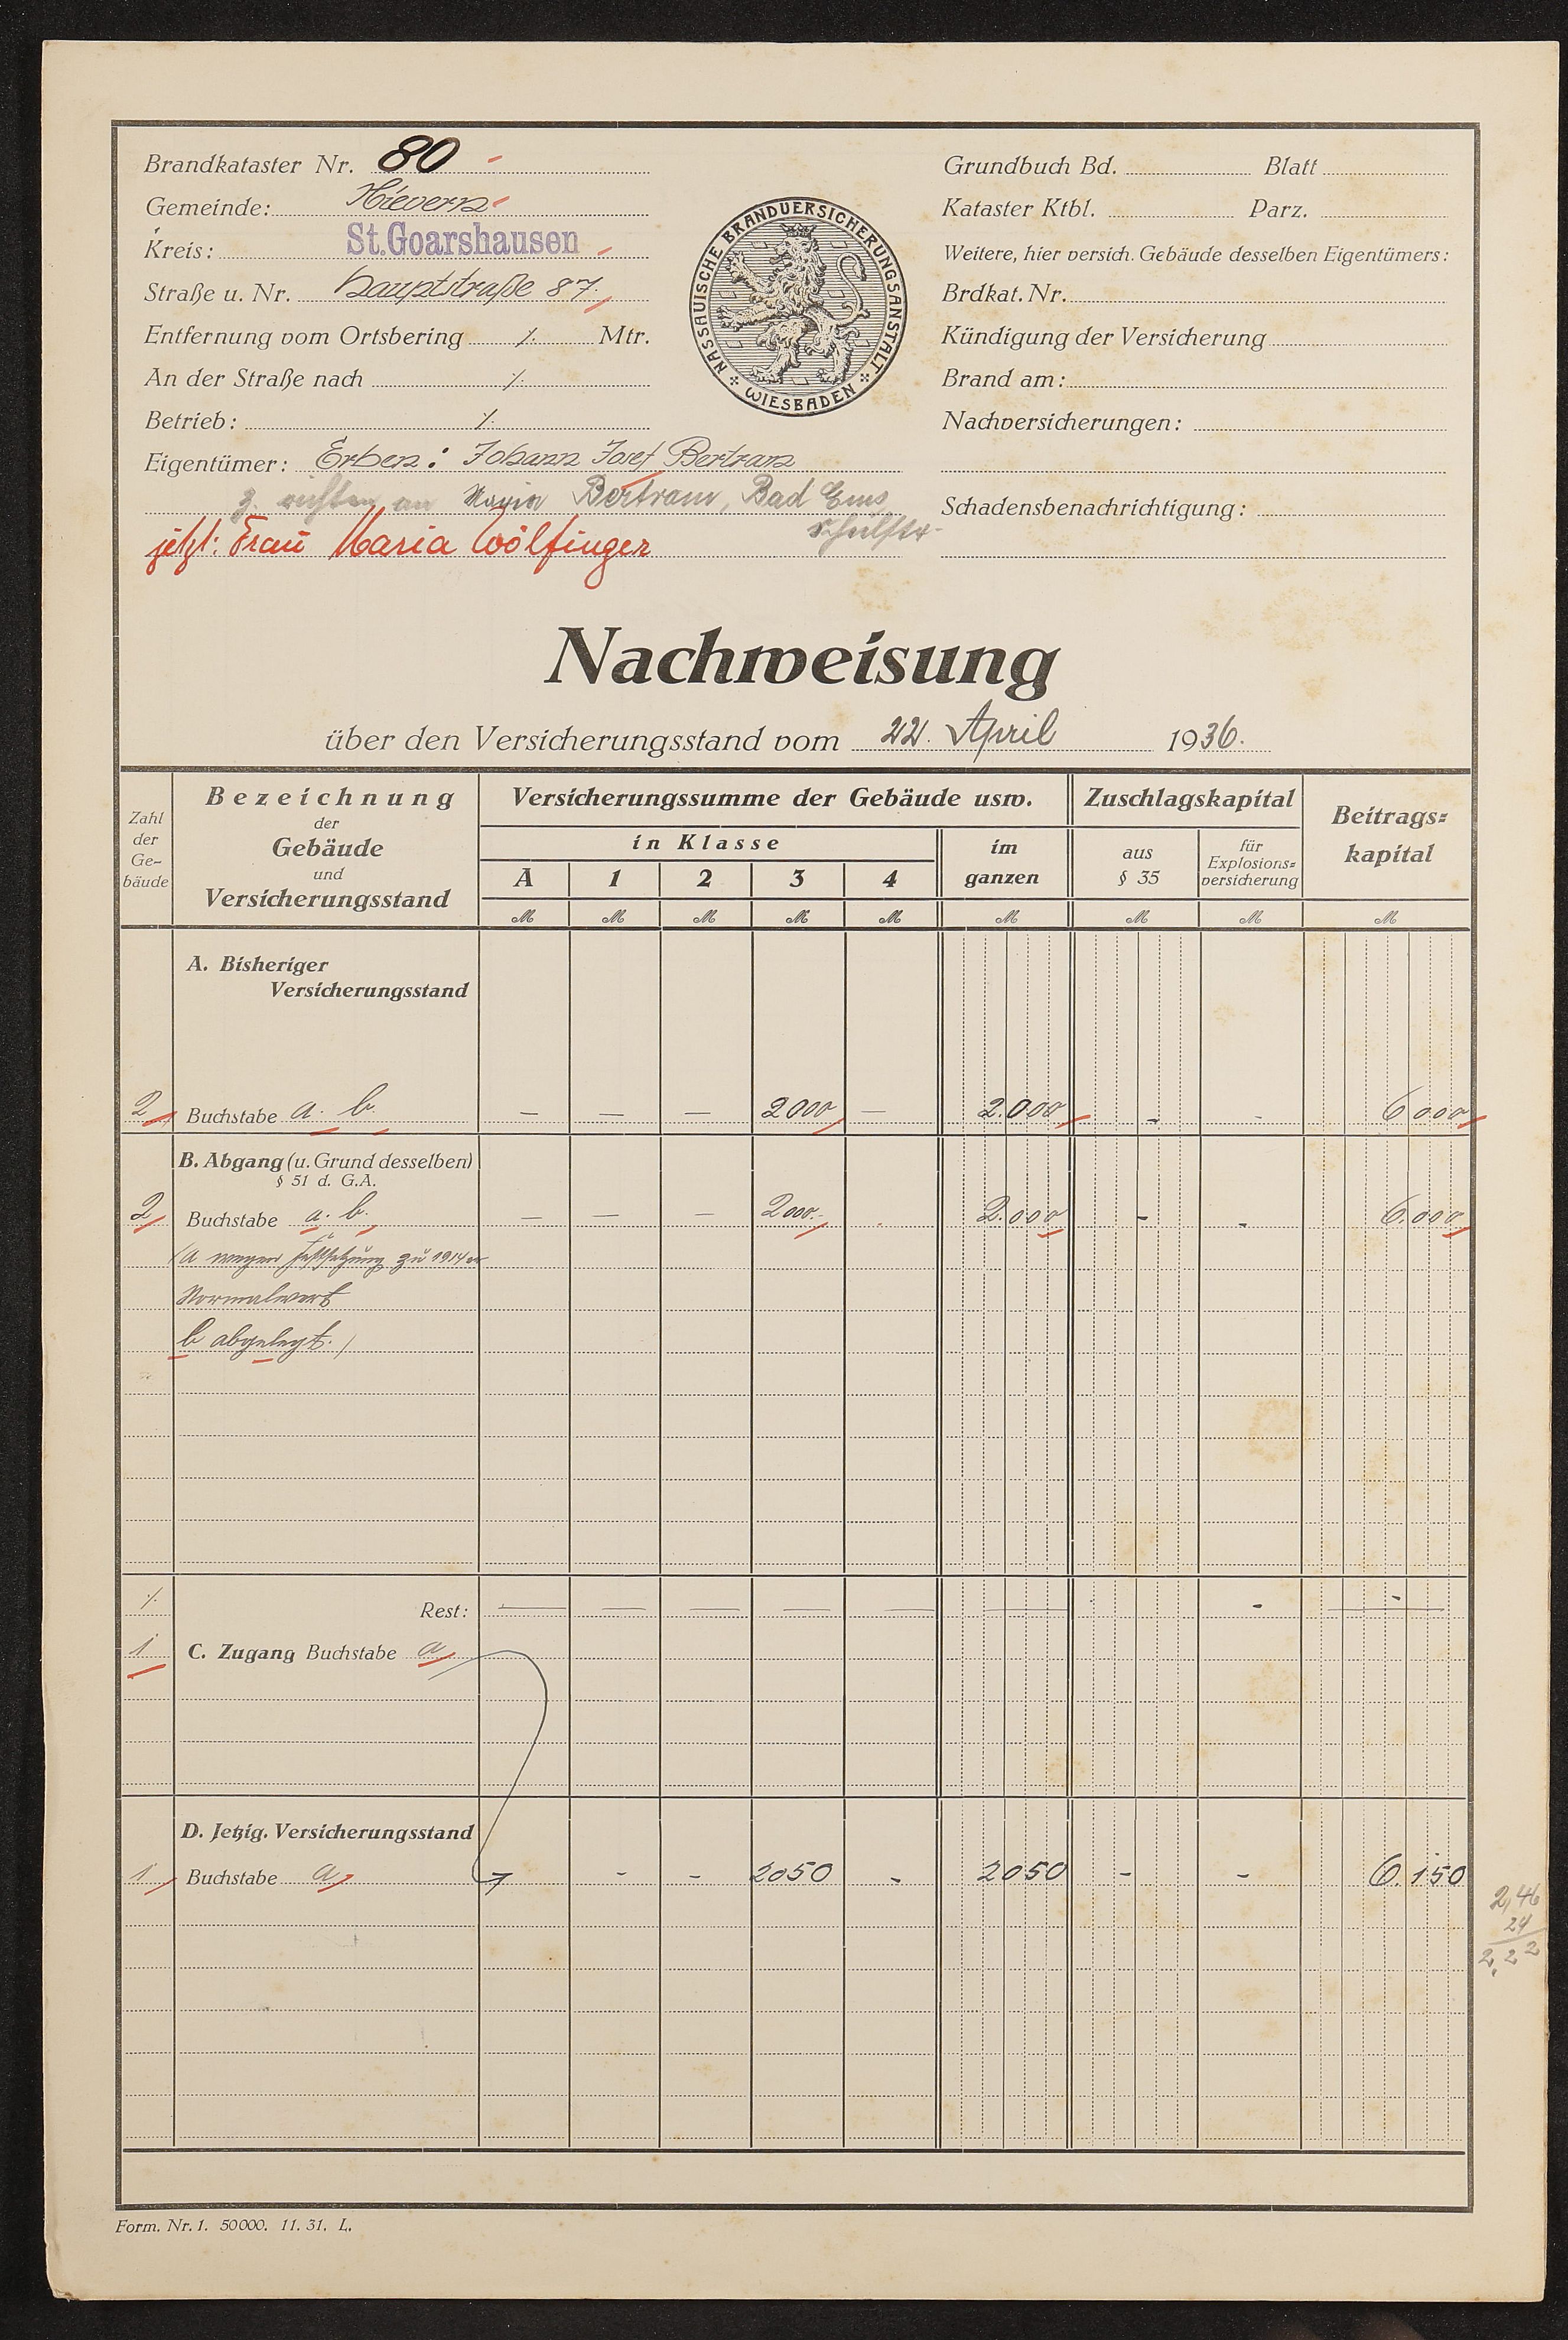 Brandkataster Nr. 80
Gemeinde: Nievern
Kreis: St.Goarshausen
Straße u. Nr. Hauptstraße 87.
Entfernung vom Ortsbering ./. Mtr.
An der Straße nach ./.
Betrieb: ./.
Eigentümer: Erben: Johann Josef Bertram
z. richten an Maria Bertram, Bad Ems,
Schulstr.
jetzt: Frau Maria Wölfinger
NASSAUISCHE BRANDVERSICHERUNGSANSTALT
WIESBADEN
Grundbuch Bd. Blatt
Kataster Ktbl. Parz.
Weitere, hier versich. Gebäude desselben Eigentümers:
Brdkat. Nr.
Kündigung der Versicherung
Brand am:
Nachversicherungen:
Schadensbenachrichtigung:
Nachweisung
über den Versicherungsstand vom 22. April 1936.
Zahl der Ge-bäude
Bezeichnung der Gebäude und Versicherungsstand
Versicherungssumme der Gebäude usw.
in Klasse
A 1 2 3 4
im ganzen
Zuschlagskapital
aus § 35
für Explosions=versicherung
Beitrags=kapital
M M M M M M M M M
A. Bisheriger
Versicherungsstand
2 Buchstabe a. b. — — — 2000 — 2.000 - - 6000
B. Abgang (u. Grund desselben)
§ 51 d. G.A.
2 Buchstabe a. b. — — — 2000.- . 2.000 - - 6.000
(a wegen Festsetzung zu 1914er
Normalwert
b abgelegt.)
./. Rest: — — — — — — - -
1 C. Zugang Buchstabe a
D. Jetzig. Versicherungsstand
1 Buchstabe a - - 2050 - 2050 - - 6.150
2,46
24
2.22
Form. Nr. 1. 50000. 11. 31. L.